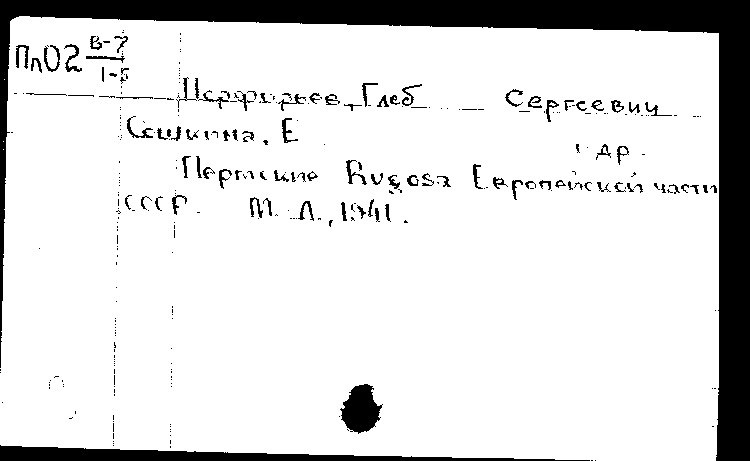 Пл02 В-7
1-5
Порфирьев, Глеб Сергеевич
Сошкина, Е и др.
Пермские Rugosa Европейской части
СССР. М. Л., 1941.